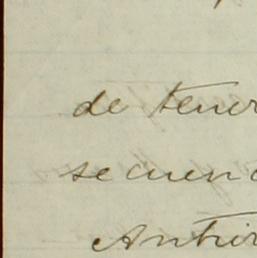 de tener
se cuen
Antio